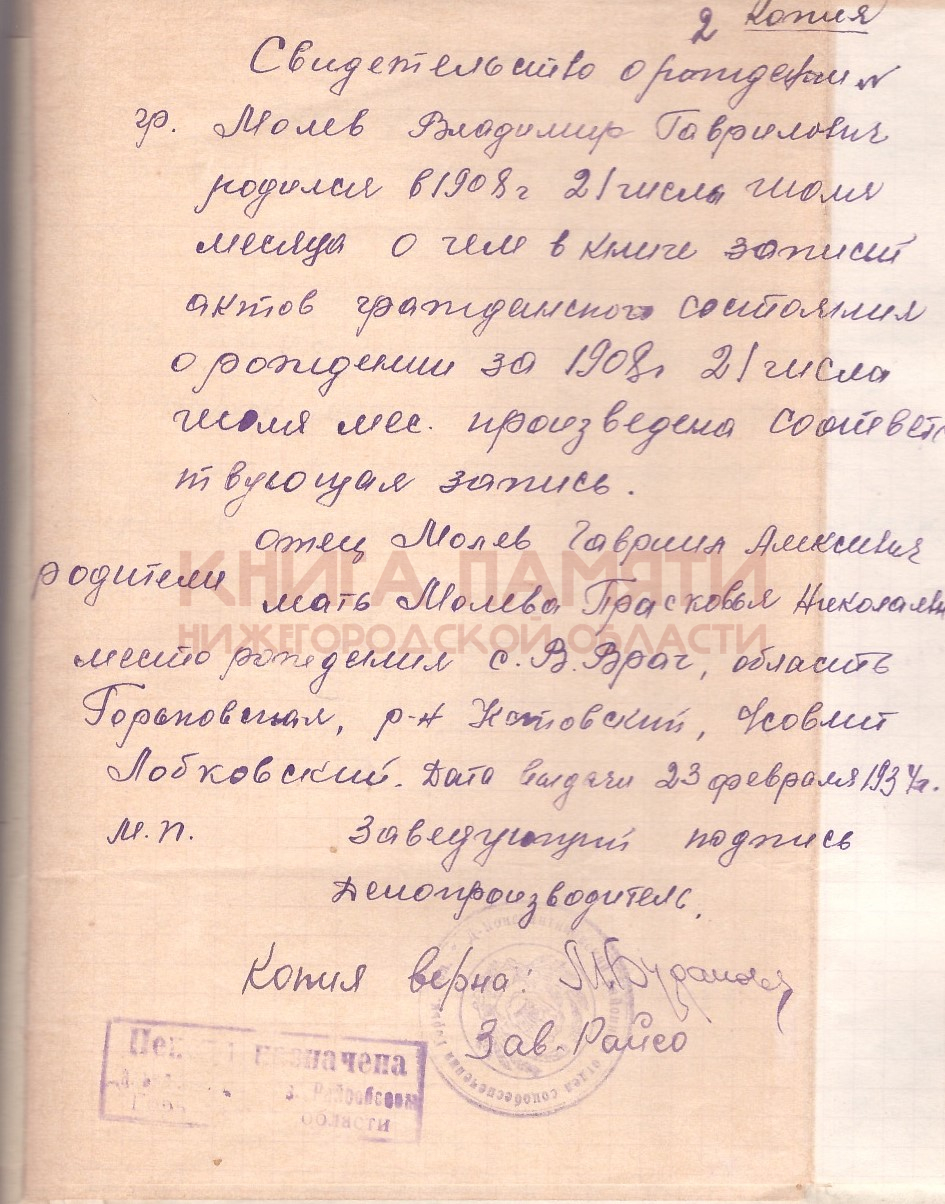 2 Копия
Свидетельство о рождении
гр. Молев Владимир Гаврилович
родился в 1908 г 21 числа июля
месяца о чем в книге записи
актов гражданского состояния
о рождении за 1908 г 21 числа
июля мес. произведена соответс
твующая запись.
отец Молев Гавриил Алексеевич
родители
мать Молева Прасковья Николаевн
КНИГА ПАМЯТИ
НИЖЕГОРОДСКОЙ ОБЛАСТИ
место рождения с. В. Враг, область
Горьковская, р-н Кстовский,
Лобковский. Дата выдачи 23 февраля 1934 г.
м.п. Заведующий подпись
Делопроизводитель.
Копия верна:
Зав. Райсо
отдел соцобеспечения
назначена
области